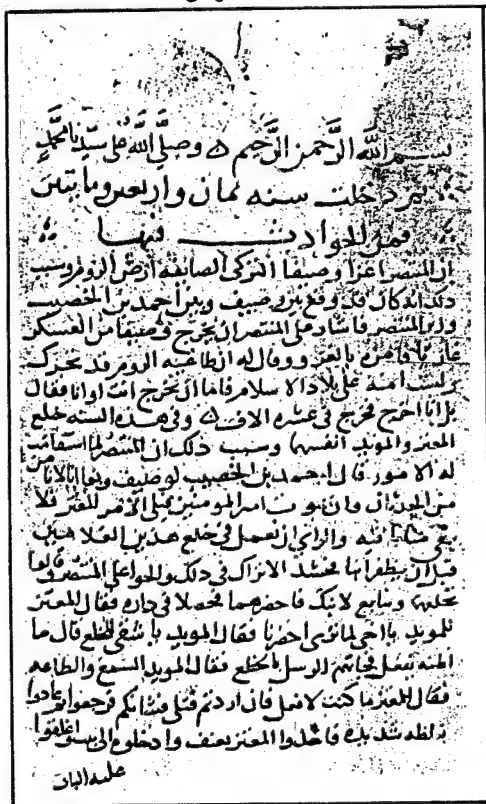 بسم الله الرَّحمن الرَّحيم ه وصلَّى اللَّه على سيّدنا محمَّد
ثم دخلت سنه ثمان واربعين وماىتين
فمن الحوادث فيها
ان المنتصر اغزا وصيفا التركى الصائفه ارض الروم وسبب
ذلك انه كان قد وقع بين وصيف وبين احمد بن الخصيب
وزير المنتصر فاشار على المنتصر ان يخرج وصيفا من العسكر
غازيا فامره بالغزو وقال له ان طاغيه الروم قد تحرك
ولست امنه على بلاد الاسلام فاما ان تخرج انت او انا فقال
بل انا اخرج فخرج فى عشره الاف ه وفى هذه السنه خلع
المعتز والمويد انفسهما وسبب ذلك ان المنتصر لما استقامت
له الامور قال احمد بن الخصيب لوصيف وبغا انا لانامن
من الحدثان وان يموت امير المومنين فيلى الامر المعتز فلا
يبقى منا والراى ان نعمل فى خلع هذين الغلامين
قبل ان يظفرا بنا فجد الاتراك فى ذلك والحوا على المنتصر وقالوا
نخلعهما ونبايع لابنك فاحضرهما فجعلا فى داره فقال المعتز
للمويد يا اخى لم ترى احضرنا فقال المويد يا شقى للخلع قال ما
اظنه يفعل فجاتهم الرسل بالخلع فقال المويد السمع والطاعه
فقال المعتز ما كنت لافعل فان اردتم قتلى فشانكم فرجعوا ثم عادوا
بغلظه شديده فاخذوا المعتز بعنف وادخلوه الى بيت واغلقوا
عليه الباب